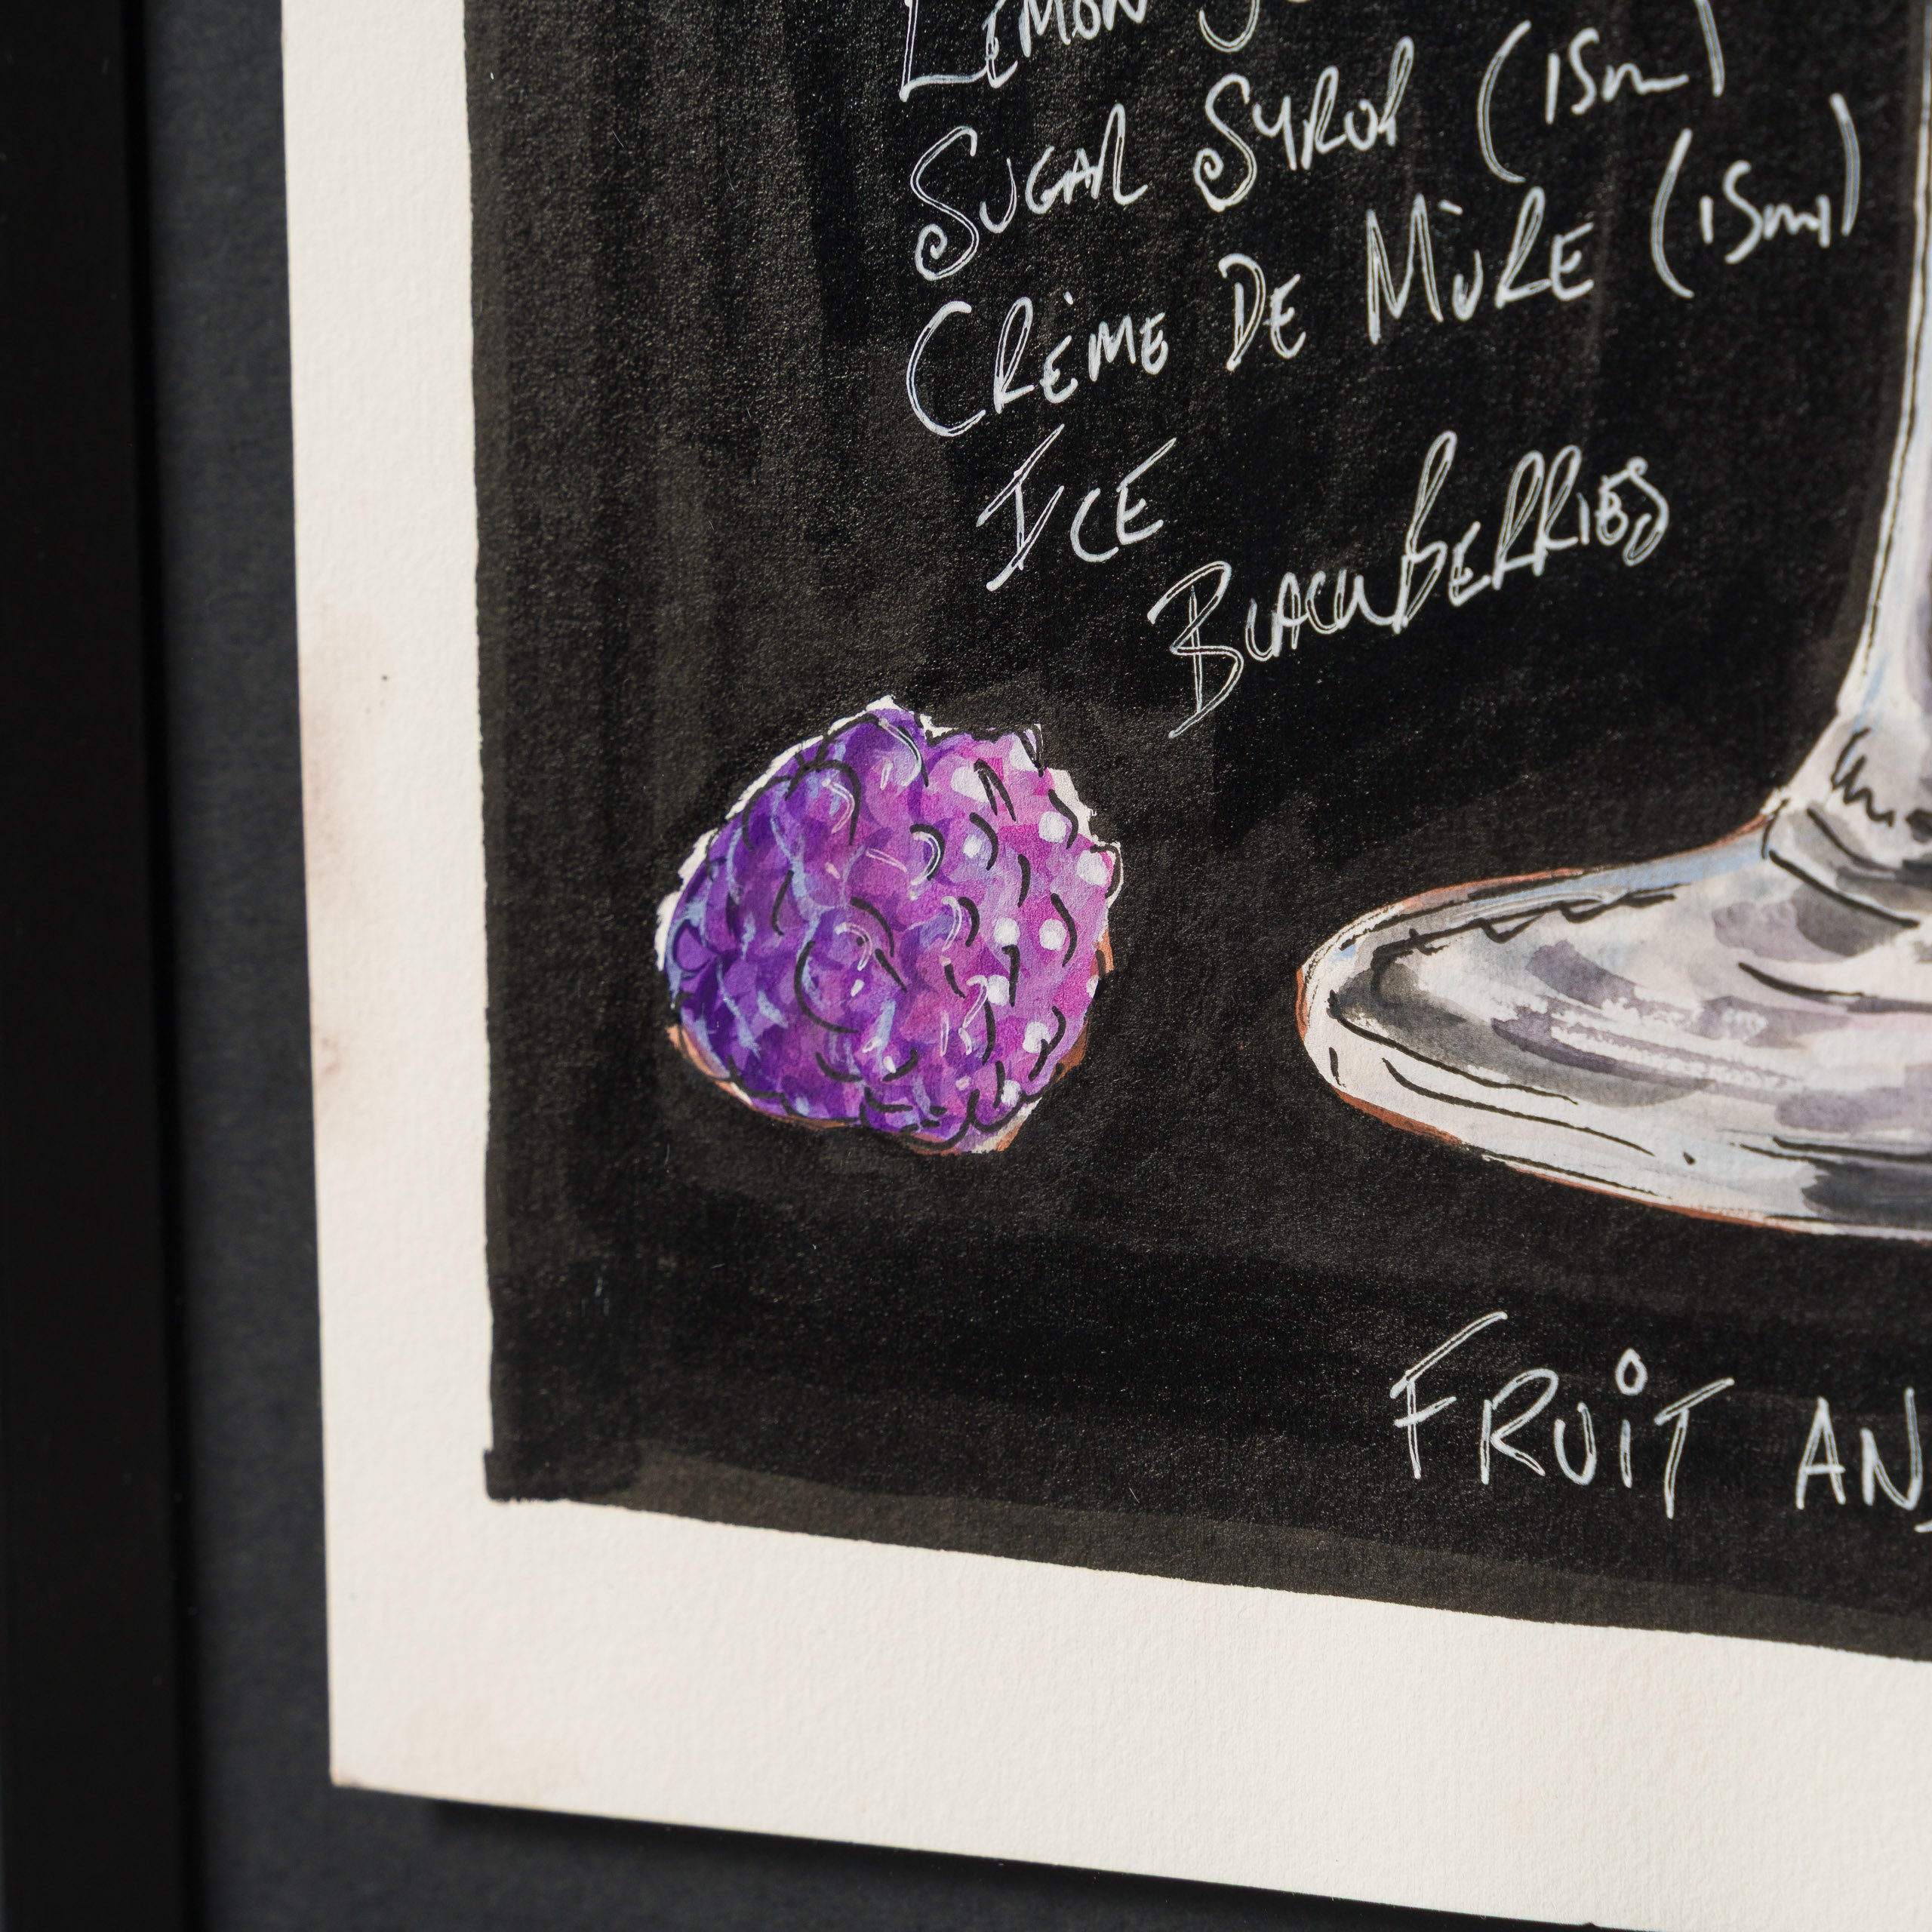 LEMON
SUGAR SYROP (15ml)
CRÈME DE MÙRE (15ml)
ICE
BLACKBERRIES
FRUIT AN